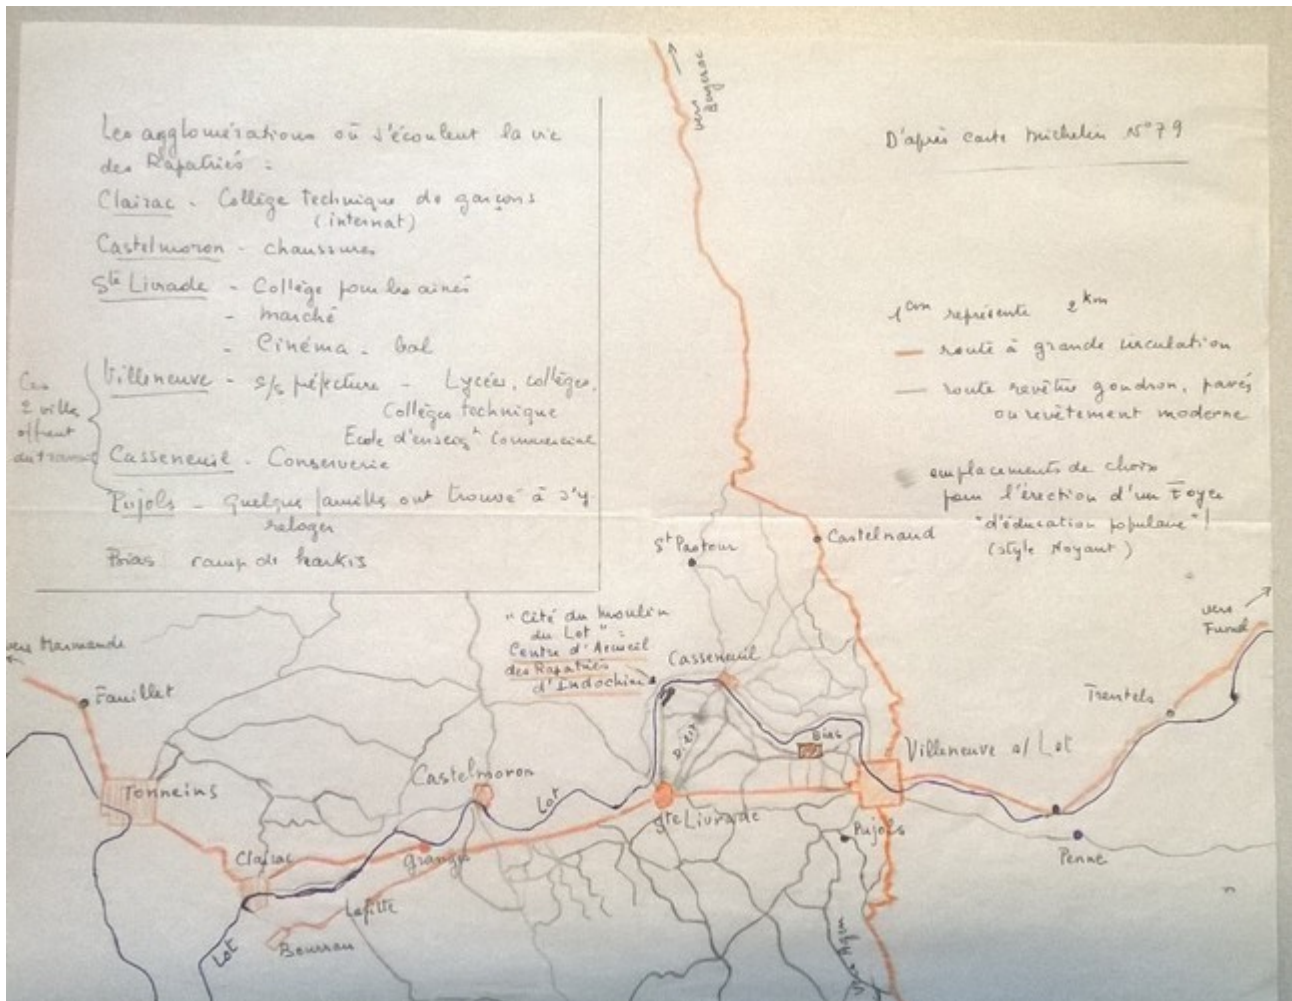 Les agglomérations où s'écoulent la vie
des Rapatriés :
Clairac - Collège Technique de garçons
(internat)
Castelmoron - chaussures
Ste Livrade - Collège pour les aînés
- marché
- Cinéma - bal
Villeneuve - s/s préfecture - Lycées, collèges,
Collèges technique
Ecole d'enseigt Commercial
Casseneuil - Conserverie
Pujols - quelques familles ont trouvé à s'y
reloger
Bias camp de harkis
Ces
2 villes
offrent
du travail
vers
Bergerac
D'après carte Michelin N° 79
1 cm représente 2 km
route à grande circulation
route revêtue goudron, pavés
ou revêtement moderne
emplacements de choix
pour l'érection d'un Foyer
"d'éducation populaire" !
(style Noyant)
St Pastour
Castelnaud
"Cité du Moulin
du Lot" :
Centre d'Accueil
des Rapatriés
d'Indochine
Casseneuil
vers
Fumel
vers Marmande
Fauillet
Trentels
D. 217
Bias
Villeneuve s/ Lot
Tonneins
Castelmoron
Lot
Ste Livrade
Pujols
Penne
Clairac
Granges
Lafitte
Bourran
Lot
vers Agen